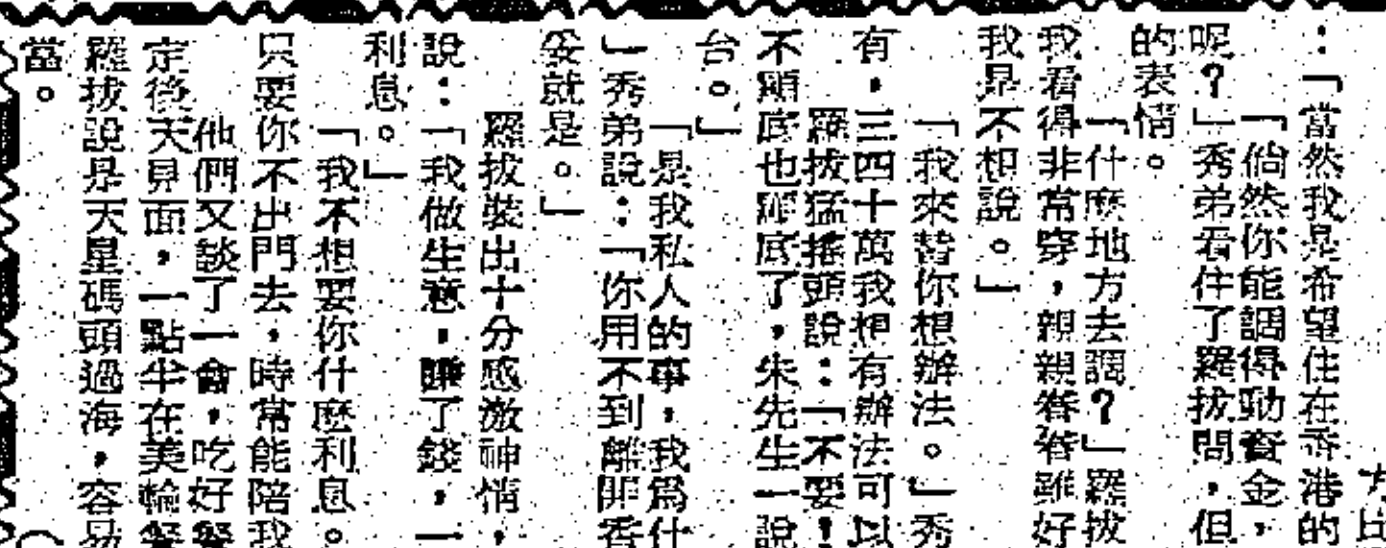 ：「當然我是希望住在香港的
「倘然你能調得動資金，
呢？」秀弟看住了羅拔問，但
的表情。
「什麽地方去調？」羅拔
我看得非常穿，親親眷眷雖好
我是不想說。」
「我來替你想辦法。」秀
有，三四十萬我想有辦法可以
羅拔猛搖頭說：「不要！
不顯底也顯底了，朱先生一說
台。」
「是我私人的事，我爲什
」秀弟說：「你用不到離開香
妥就是。」
羅拔裝出十分感激神情，
說：「我做生意，賺了錢，一
利息。」
「我不想要你什麽利息。
只要你不出門去，時常能陪我
他們又談了一會，吃好餐
定後天見面，一點半在美輪餐
羅拔說是天星碼頭過海，容易
當。